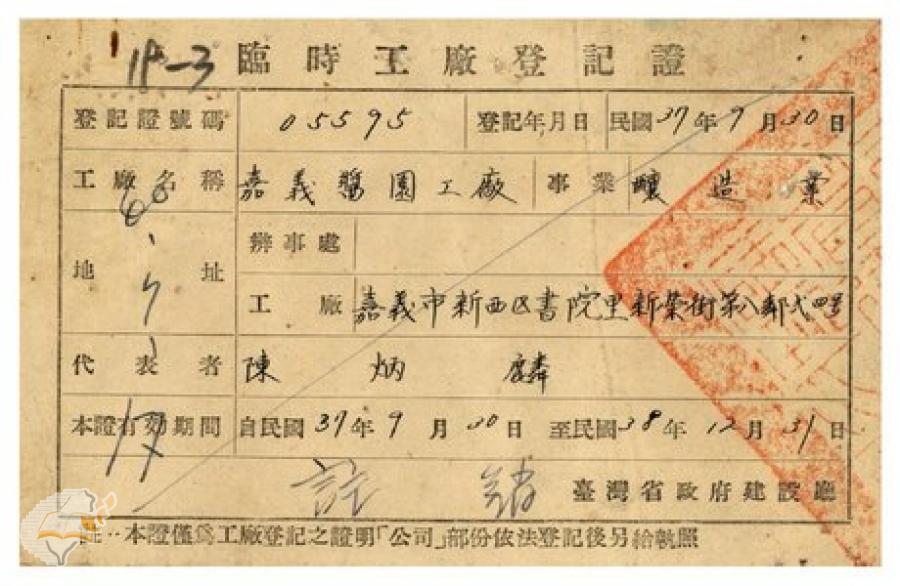 18-3
臨時工廠登記證
登記證號碼 05595 登記年月日 民國37年9月30日
工廠名稱 嘉義醬園工廠 事業 釀造業
地址 辦事處
工廠 嘉義市新西区書院里新榮街第八鄰弍四号
代表者 陳炳麟
本證有効期間 自民國37年9月30日 至民國38年12月31日
註銷 臺灣省政府建設廳
註：本證僅為工廠登記之證明「公司」部份依法登記後另給執照